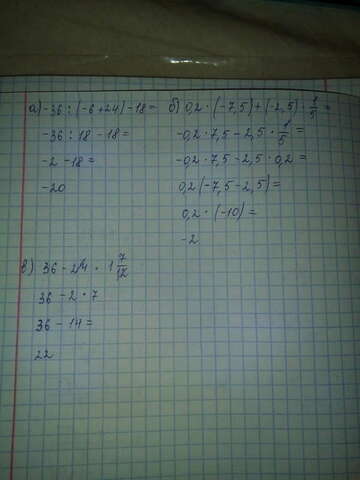 а) -36 : (-6+24) - 18 =
-36 : 18 - 18 =
-2 - 18 =
-20
б) 0,2 · (-7,5) + (-2,5) · 1/5 =
-0,2 · 7,5 - 2,5 · 1/5 =
-0,2 · 7,5 - 2,5 · 0,2 =
0,2 (-7,5 - 2,5) =
0,2 · (-10) =
-2
в) 36 - 24 · 1 7/12
36 - 2 · 7
36 - 14 =
22